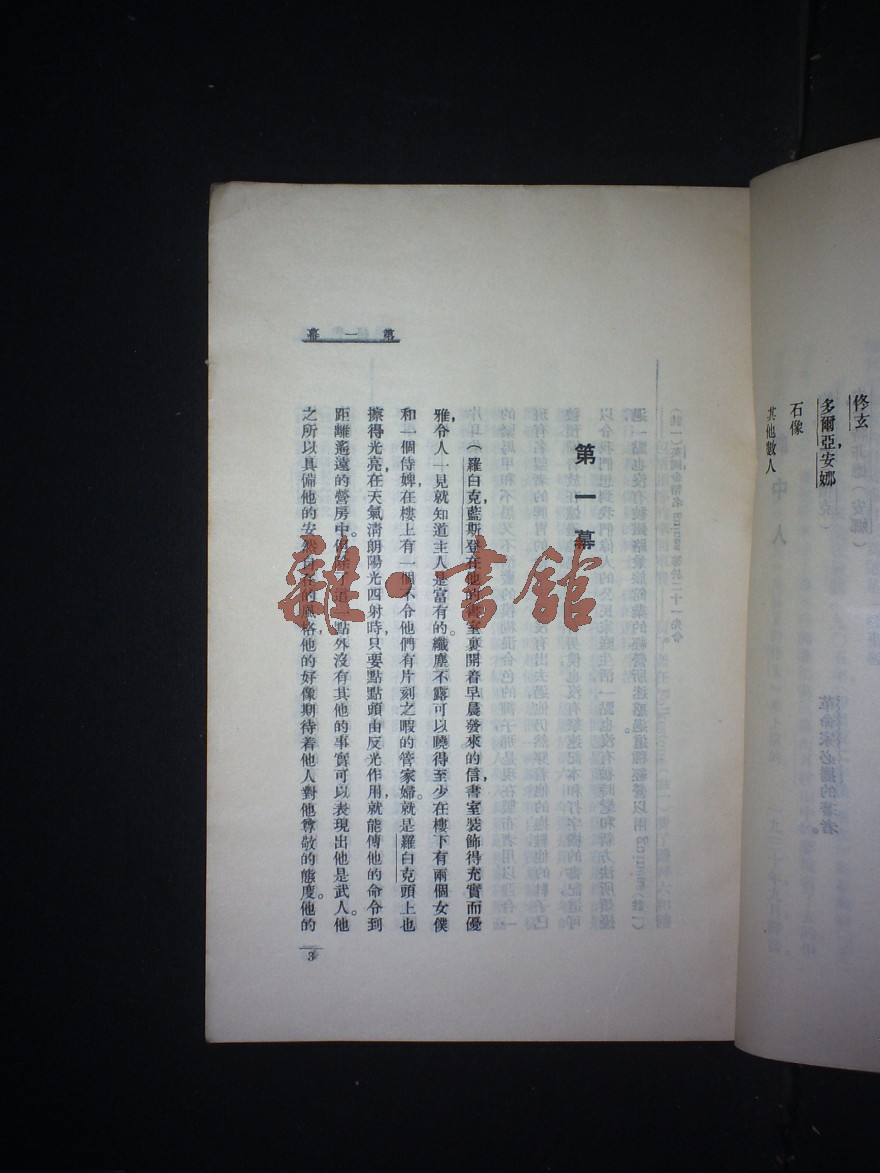 佟玄
多爾亞安娜，
石像
其他數人
第一幕
第一幕
（羅白克藍斯登在他的書室裏開着早晨發來的信，書室裝飾得充實而優
雅，令人一見就知道主人是富有的。纖塵不露可以曉得至少在樓下有兩個女僕
和一個侍婢，在樓上有一個不令他們有片刻之暇的管家婦。就是羅白克頭上也
擦得光亮，在天氣清朗陽光四射時，只要點點頭由反光作用，就能傳他的命令到
距離遙遠的營房中。但除了這一點外沒有其他的事實可以表現出他是武人。他
之所以具備他的安然自在的風格，他的好像期待着他人對他尊敬的態度。他的
3
雜·書館